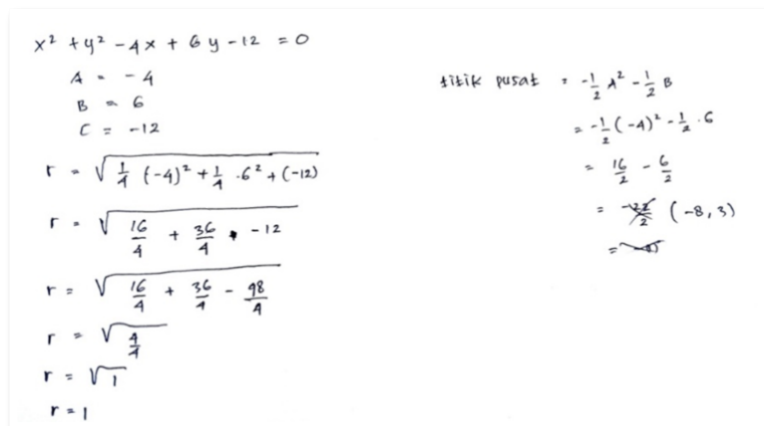 x² + y² - 4x + 6y - 12 = 0
A = -4
B = 6
C = -12
r = √(1/4 (-4)² + 1/4 · 6² + (-12))
r = √(16/4 + 36/4 · -12)
r = √(16/4 + 36/4 - 48/4)
r = √(4/4)
r = √1
r = 1
titik pusat = -1/2 A² - 1/2 B
= -1/2 (-4)² - 1/2 · 6
= 16/2 - 6/2
= (-8, 3)
=